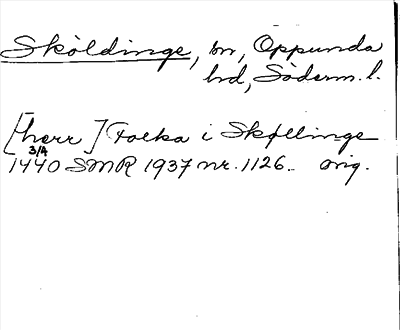 Sköldinge, sn, Oppunda
hd, Söderm. l.
[herr] Folka i Skøllinge
3/4
1440 SMR 1937 nr. 1126. orig.